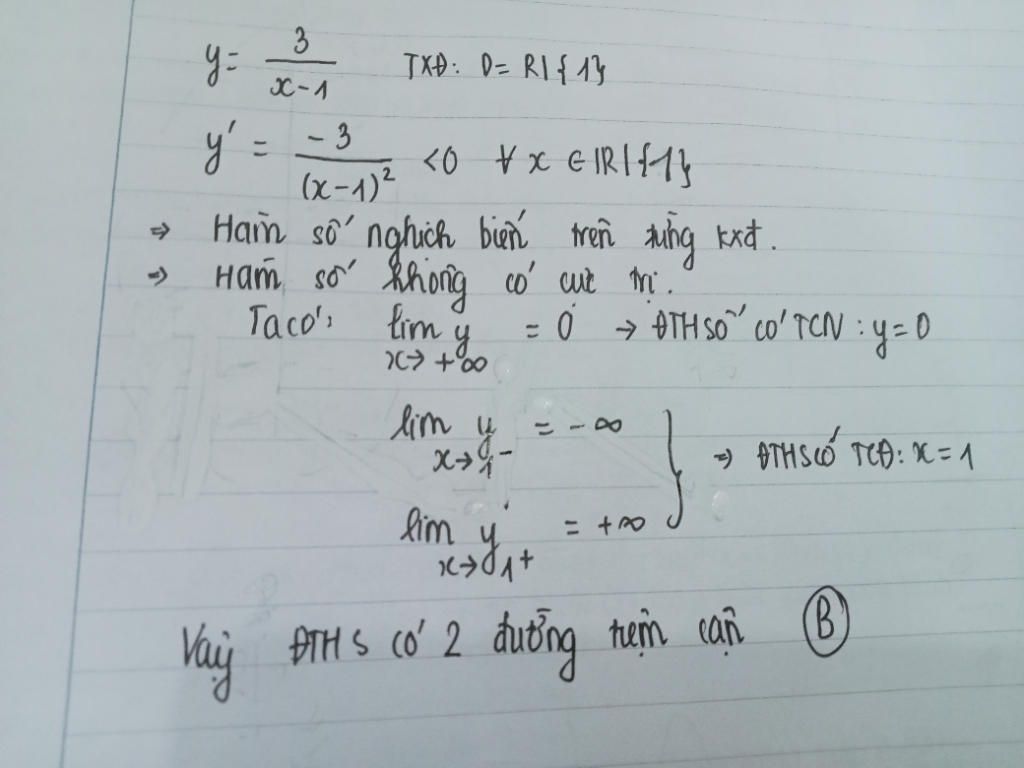 y = 3/(x-1) TXĐ: D = R∖{1}
y' = -3/(x-1)² < 0 ∀ x ∈ ℝ∖{1}
⇒ Hàm số nghịch biến trên từng kxđ.
⇒ Hàm số không có cực trị.
Ta có: lim y x→+∞ = 0 → ĐTHSố có TCN: y = 0
lim y x→1⁻ = -∞
lim y x→1⁺ = +∞ } ⇒ ĐTHS có TCĐ: x = 1
Vậy ĐTHS có 2 đường tiệm cận Ⓑ